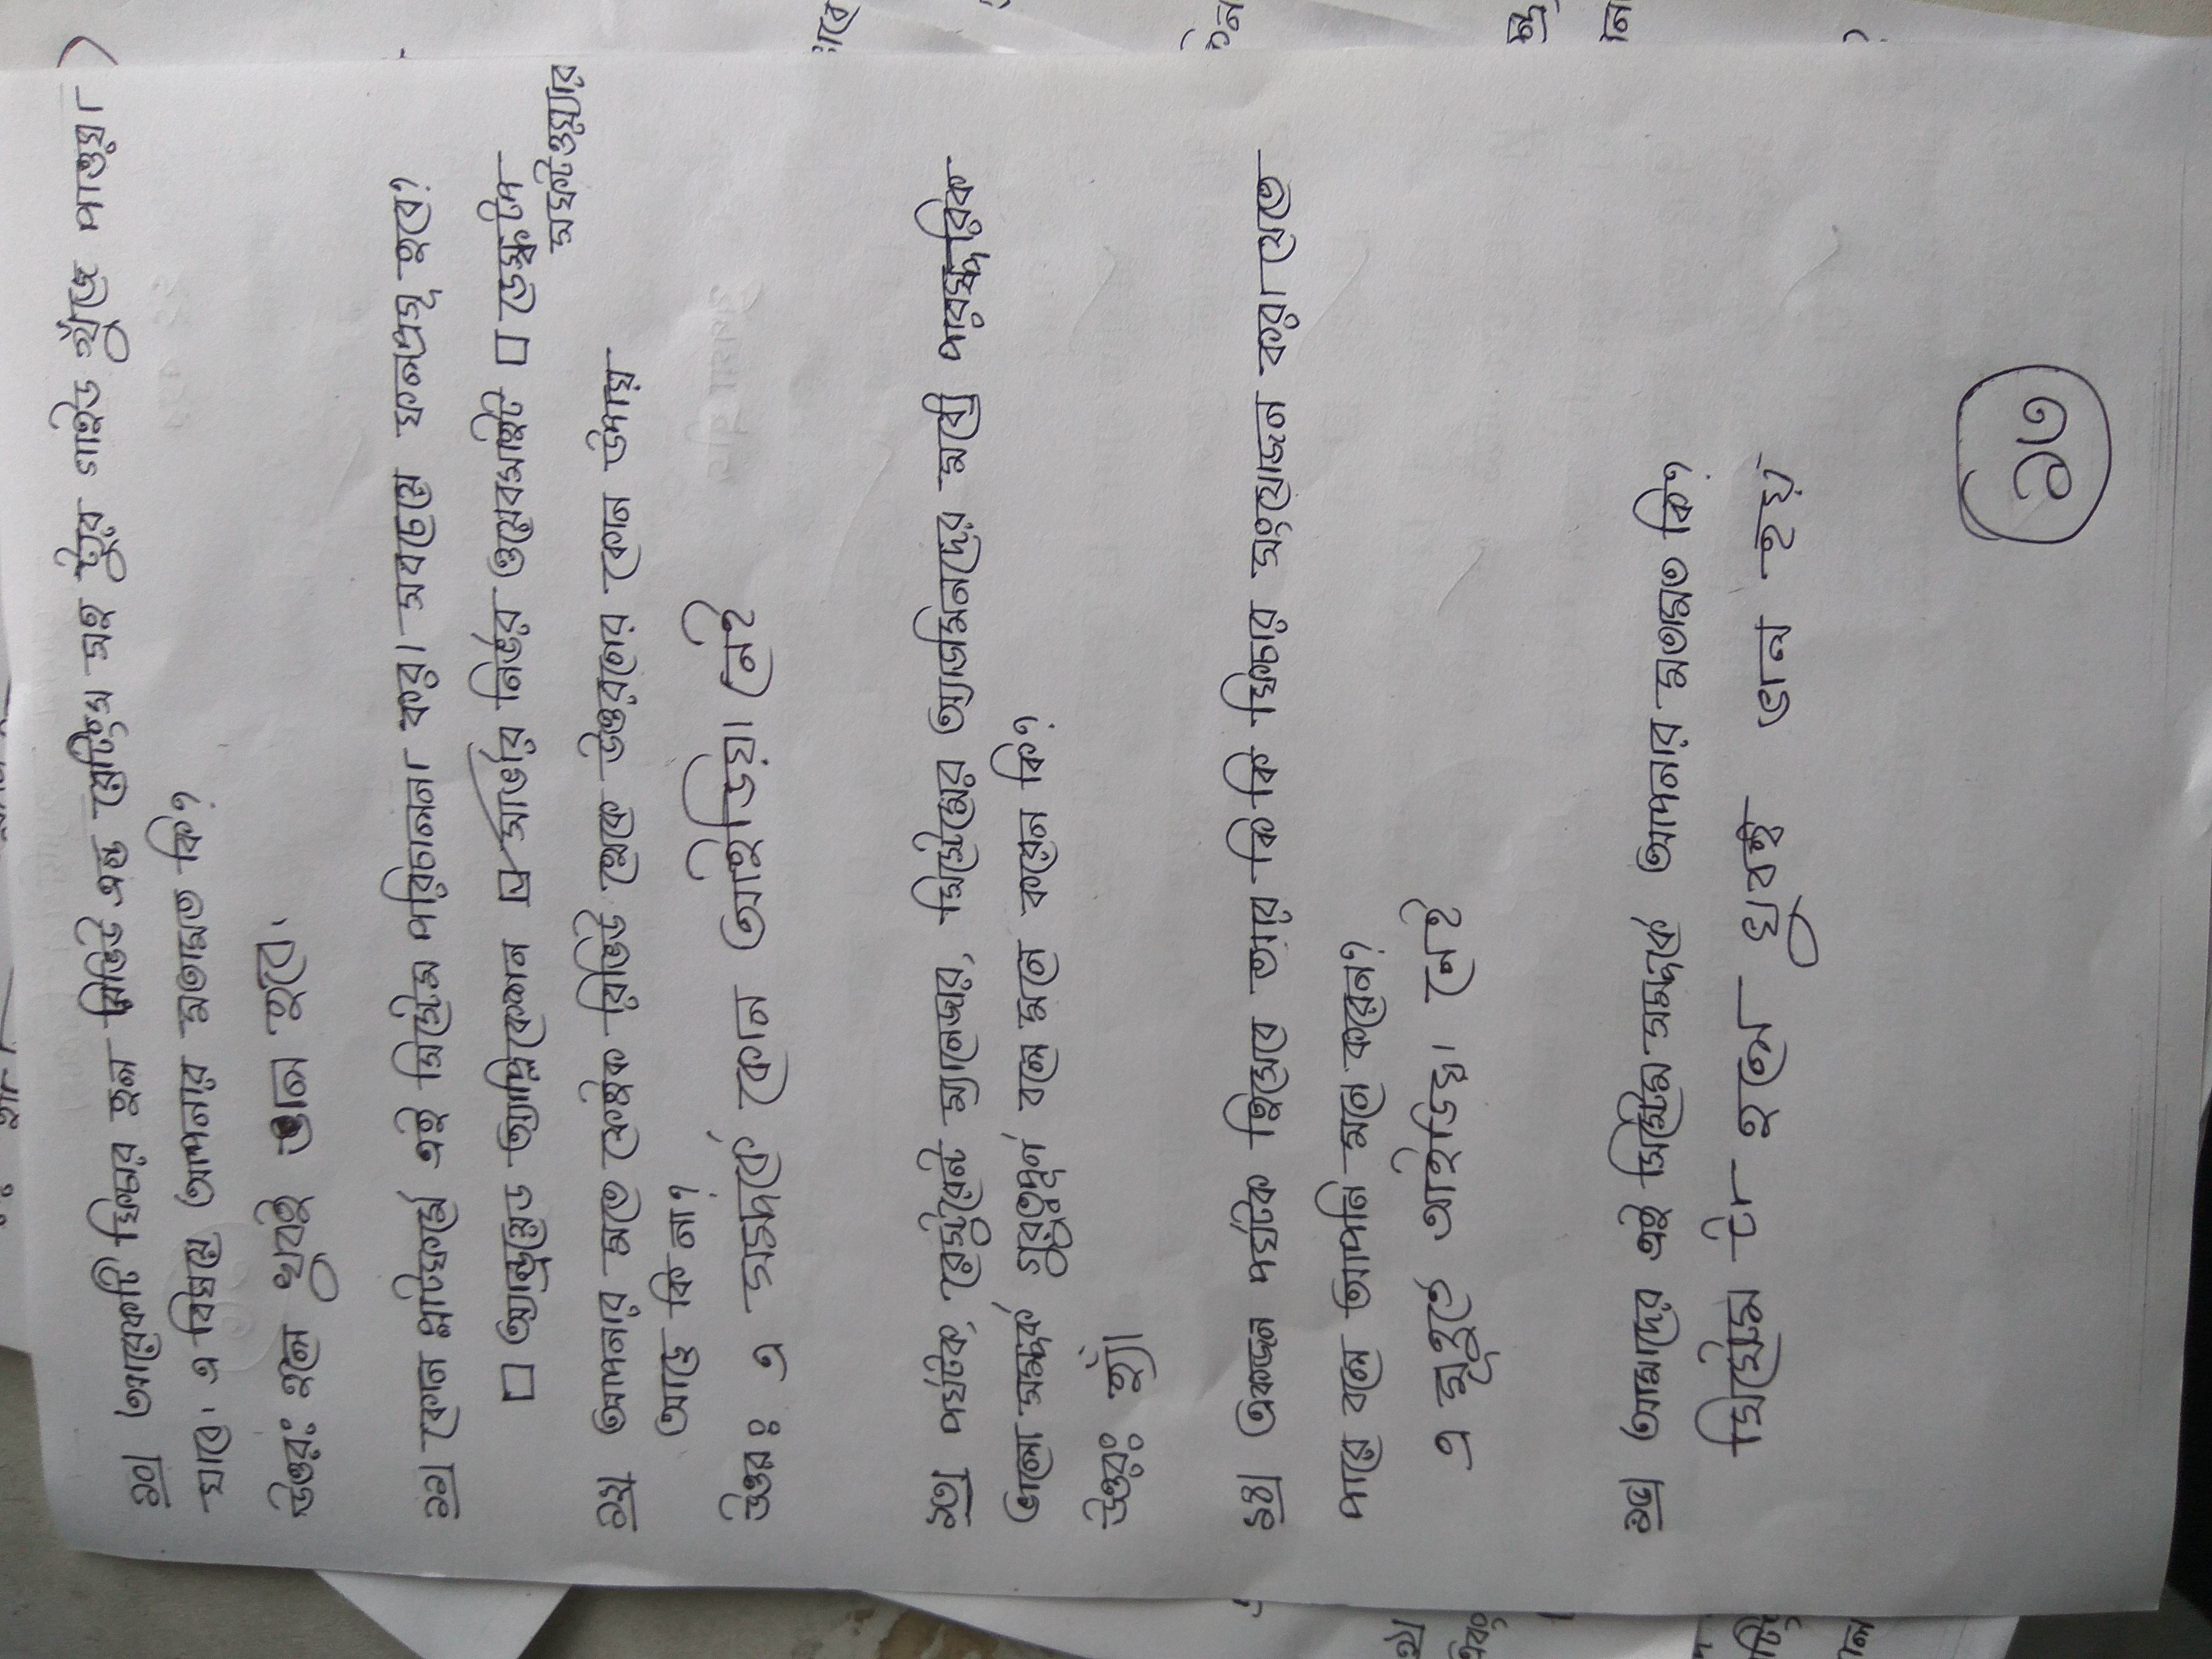 ১০| আরেকটি ফিচার হল রিভিউ এন্ড রেটিংস সহ ট্যুর গাইড খুঁজে পাওয়া
যাবে। এ বিষয়ে আপনার মতামত কি?
উত্তর: হলে খুবই ভাল হবে।
১১| কোন প্লাটফর্মে এই সিস্টেম পরিচালনা করা সবচেয়ে ফলপ্রসূ হবে?
□ অ্যান্ড্রয়েড অ্যাপ্লিকেশন ☑ সার্ভার নির্ভর ওয়েবসাইট □ ডেস্কটপ
সফটওয়্যার
১২| আপনার মতে ফেইক রিভিউ থেকে উত্তরণের কোন উপায়
আছে কি না?
উত্তর: এ সম্পর্কে কোন আইডিয়া নেই
১৩| পর্যটক, রেস্টুরেন্ট ম্যানেজার, সিস্টেমের অ্যাডমিনদের মধ্যে পারস্পরিক
ভালো সম্পর্ক গুরুত্বপূর্ণ বলে মনে করেন কি?
উত্তর: হ্যাঁ
১৪| একজন পর্যটক হিসেবে আর কি কি ফিচার সংযোজন করা যেতে
পারে বলে আপনি মনে করেন?
এ মুহূর্তে আইডিয়া নেই
১৫| আমাদের এই সিস্টেম সম্পর্কে আপনার মতামত কি?
সিস্টেম টা হলে খুবই ভাল হয়
৩৭